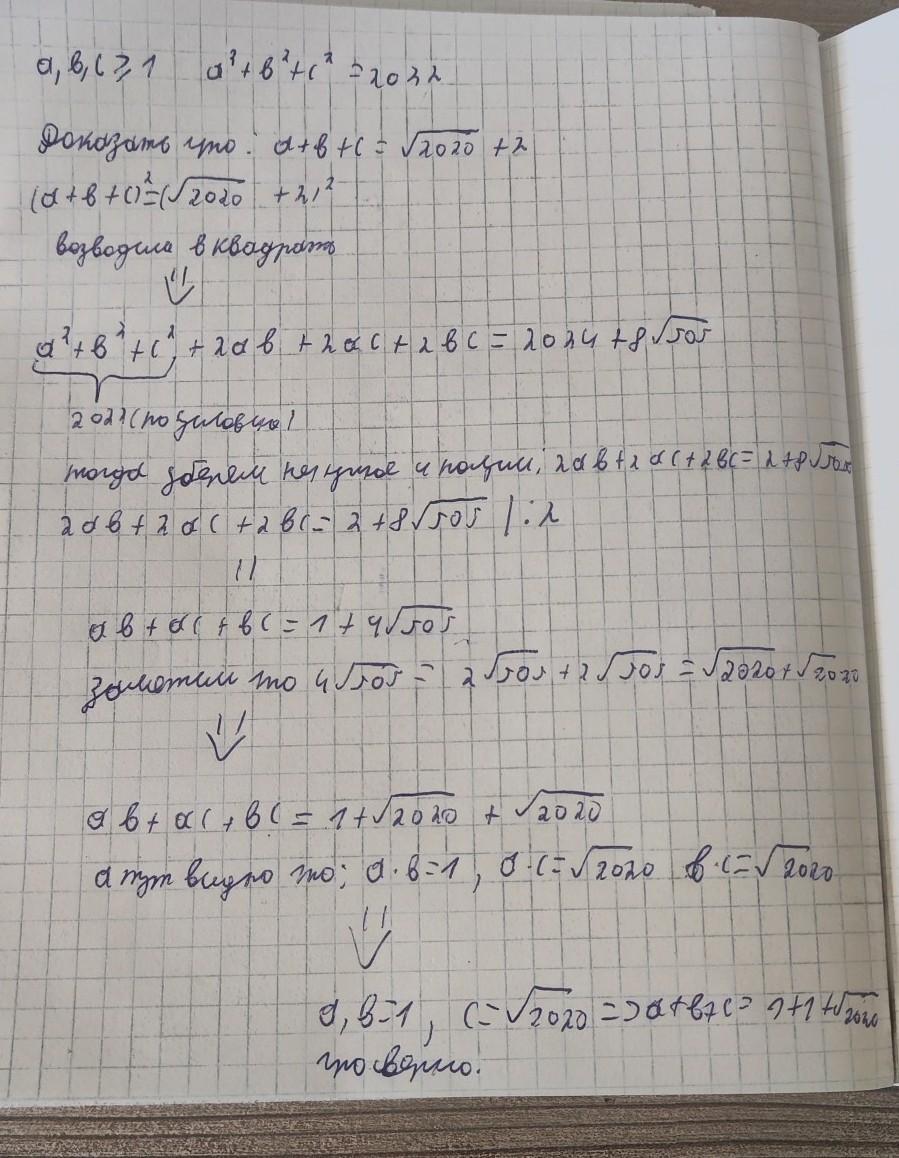 a, b, c ⩾ 1 a² + b² + c² = 2022
Доказать что: a + b + c = √2020 + 2
(a + b + c)² = (√2020 + 2)²
возводим в квадрать
⇓
a² + b² + c² + 2ab + 2ac + 2bc = 2024 + 8√505
2022 (по условию)
тогда уберем ненужное и получим; 2ab + 2ac + 2bc = 2 + 8√505
2ab + 2ac + 2bc = 2 + 8√505 | : 2
||
ab + ac + bc = 1 + 4√505
заметим что 4√505 = 2√505 + 2√505 = √2020 + √2020
⇓
ab + ac + bc = 1 + √2020 + √2020
а тут видно что; a · b = 1, a · c = √2020 b · c = √2020
⇓
a, b = 1, c = √2020 => a + b + c = 1 + 1 + √2020
что верно.